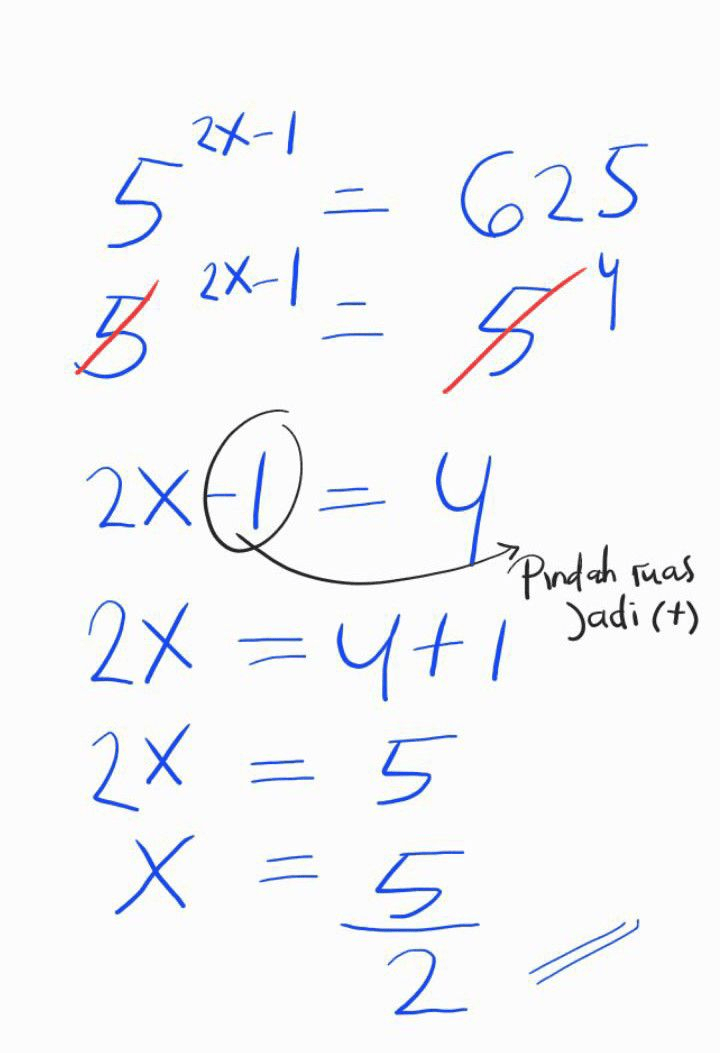 5^{2x-1} = 625
5^{2x-1} = 5^4
2x-1 = 4
Pindah ruas
Jadi (+)
2x = 4+1
2x = 5
x = 5/2